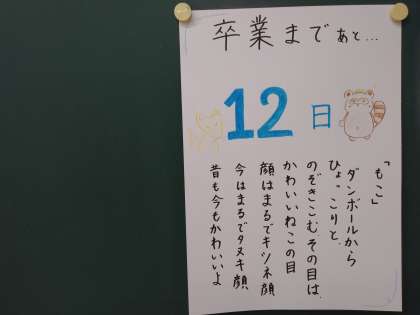 卒業まであと…
12日
「もこ」
ダンボールから
ひょっこりと
のぞきこむその目は
かわいいねこの目
顔はまるでキツネ顔
今はまるでタヌキ顔
昔も今もかわいいよ